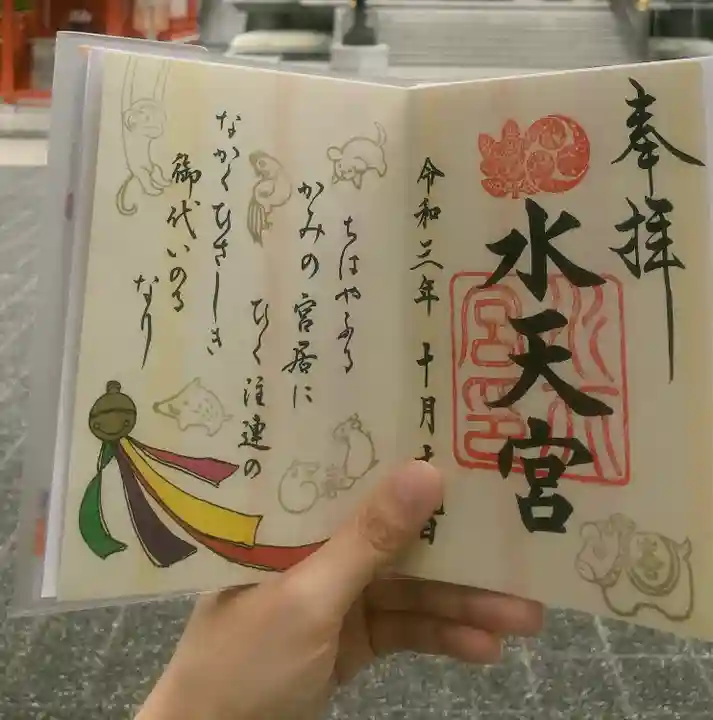 奉拝
水天宮
令和三年十月十
日
ちはやふる
かみの宮居に
ひく注連の
なかくひさしき
御代いのる
なり